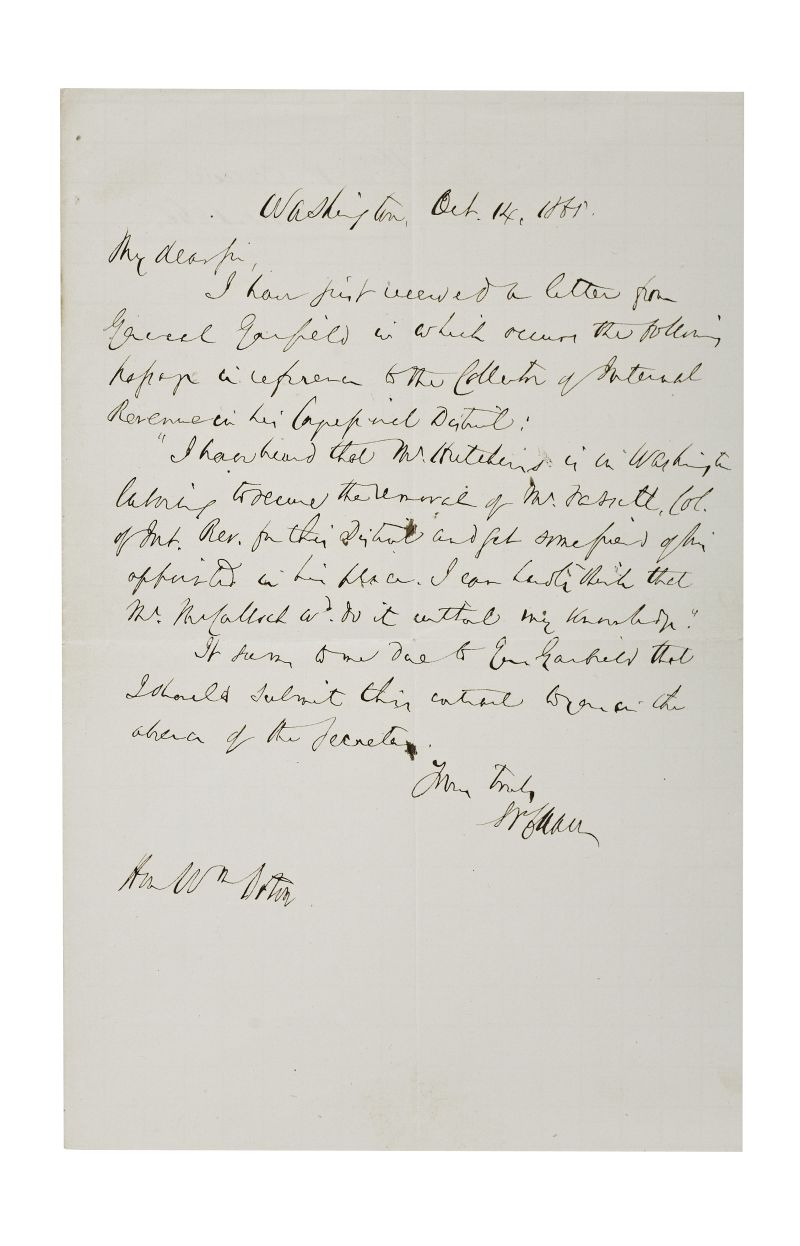 Washington, Oct. 14, 1865.
My dear Sir,
I have just received a letter from
General Garfield in which occurs the following
passage in reference to the Collector of Internal
Revenue in his Congressional District:
"I have heard that Mr. Hutchins is in Washington
laboring to secure the removal of Mr. Fassett, Col.
of Int. Rev. for this District and get some friend of his
appointed in his place. I can hardly think that
Mr. McCulloch wd. do it without my knowledge."
It seems to me due to Gen Garfield that
I should submit this extract to you in the
absence of the Secretary.
Yours truly
Hon Wm